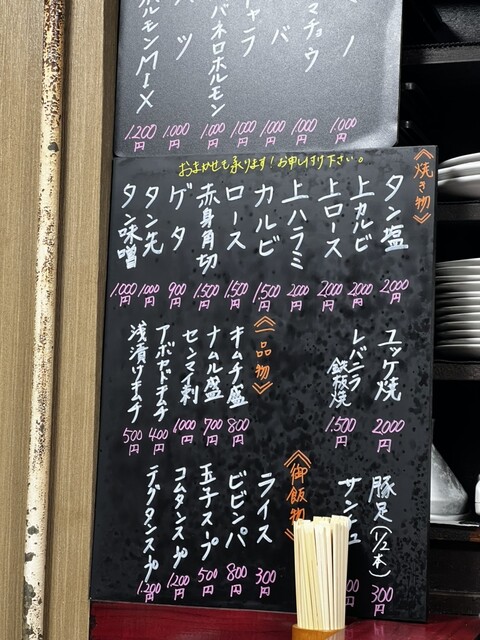 ホルモンMIX 1.200円
ハツ 1.000円
ハバネロホルモン 1.000円
1.000円
1.000円
マチョウ 1.000円
ミノ 1.000円
おまかせも承ります！お申し付け下さい。
《焼き物》
タン塩 2.000円
上カルビ 2000円
上ロース 2.000円
上ハラミ 2000円
カルビ 1.500円
ロース 1.500円
赤身角切 1.500円
ゲタ 900円
タン先 1000円
タン味噌 1000円
ユッケ焼 2000円
レバニラ鉄板焼 1.500円
《一品物》
キムチ盛 800円
ナムル盛 700円
センマイ刺 1000円
アボカドキムチ 400円
浅漬けキムチ 500円
豚足(1/2本) 300円
サンチュ
《御飯物》
ライス 300円
ビビンバ 800円
玉子スープ 500円
コムタンスープ 1.200円
テグタンスープ 1.200円